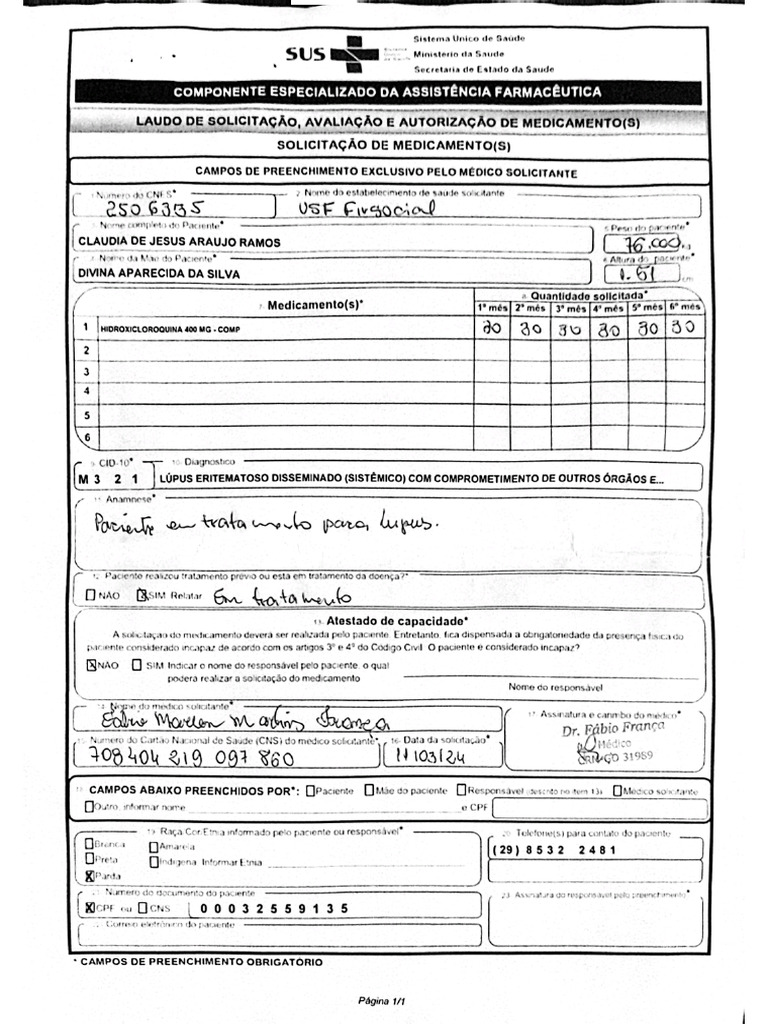 SUS
Sistema Único de Saúde
Ministério da Saúde
Secretaria de Estado da Saúde
COMPONENTE ESPECIALIZADO DA ASSISTÊNCIA FARMACÊUTICA
LAUDO DE SOLICITAÇÃO, AVALIAÇÃO E AUTORIZAÇÃO DE MEDICAMENTO(S)
SOLICITAÇÃO DE MEDICAMENTO(S)
CAMPOS DE PREENCHIMENTO EXCLUSIVO PELO MÉDICO SOLICITANTE
1. Número do CNES* 2. Nome do estabelecimento de saúde solicitante
2506335 USF
3. Nome completo do Paciente* 5. Peso do paciente*
CLAUDIA DE JESUS ARAUJO RAMOS 76.000 kg
4. Nome da Mãe do Paciente* 6. Altura do paciente*
DIVINA APARECIDA DA SILVA 1.51 cm
7. Medicamento(s)* 8. Quantidade solicitada*
1º mês 2º mês 3º mês 4º mês 5º mês 6º mês
1 HIDROXICLOROQUINA 400 MG - COMP 30 30 30 30 30 30
2
3
4
5
6
9. CID-10* 10. Diagnóstico
M 3 2 1 LÚPUS ERITEMATOSO DISSEMINADO (SISTÊMICO) COM COMPROMETIMENTO DE OUTROS ÓRGÃOS E...
11. Anamnese*
Paciente em tratamento para lupus.
12. Paciente realizou tratamento prévio ou está em tratamento da doença?*
NÃO SIM Relatar Em tratamento
13. Atestado de capacidade*
A solicitação do medicamento deverá ser realizada pelo paciente. Entretanto, fica dispensada a obrigatoriedade da presença física do
paciente considerado incapaz de acordo com os artigos 3º e 4º do Código Civil. O paciente é considerado incapaz?
NÃO SIM Indicar o nome do responsável pelo paciente, o qual
poderá realizar a solicitação do medicamento
Nome do responsável
14. Nome do médico solicitante* 17. Assinatura e carimbo do médico*
Fábio Martins França
Dr. Fábio França
Médico
31989
15. Número do Cartão Nacional de Saúde (CNS) do médico solicitante* 16. Data da solicitação*
708404 219 097 860 11/03/24
18. CAMPOS ABAIXO PREENCHIDOS POR*: Paciente Mãe do paciente Responsável (descrito no item 13) Médico solicitante
Outro, informar nome e CPF
19. Raça/Cor/Etnia informado pelo paciente ou responsável* 20. Telefone(s) para contato do paciente
Branca Amarela (29) 8532 2481
Preta Indígena. Informar Etnia
Parda
21. Número do documento do paciente 23. Assinatura do responsável pelo preenchimento*
CPF ou CNS 0 0 0 3 2 5 5 9 1 3 5
22. Correio eletrônico do paciente
* CAMPOS DE PREENCHIMENTO OBRIGATÓRIO
Página 1/1